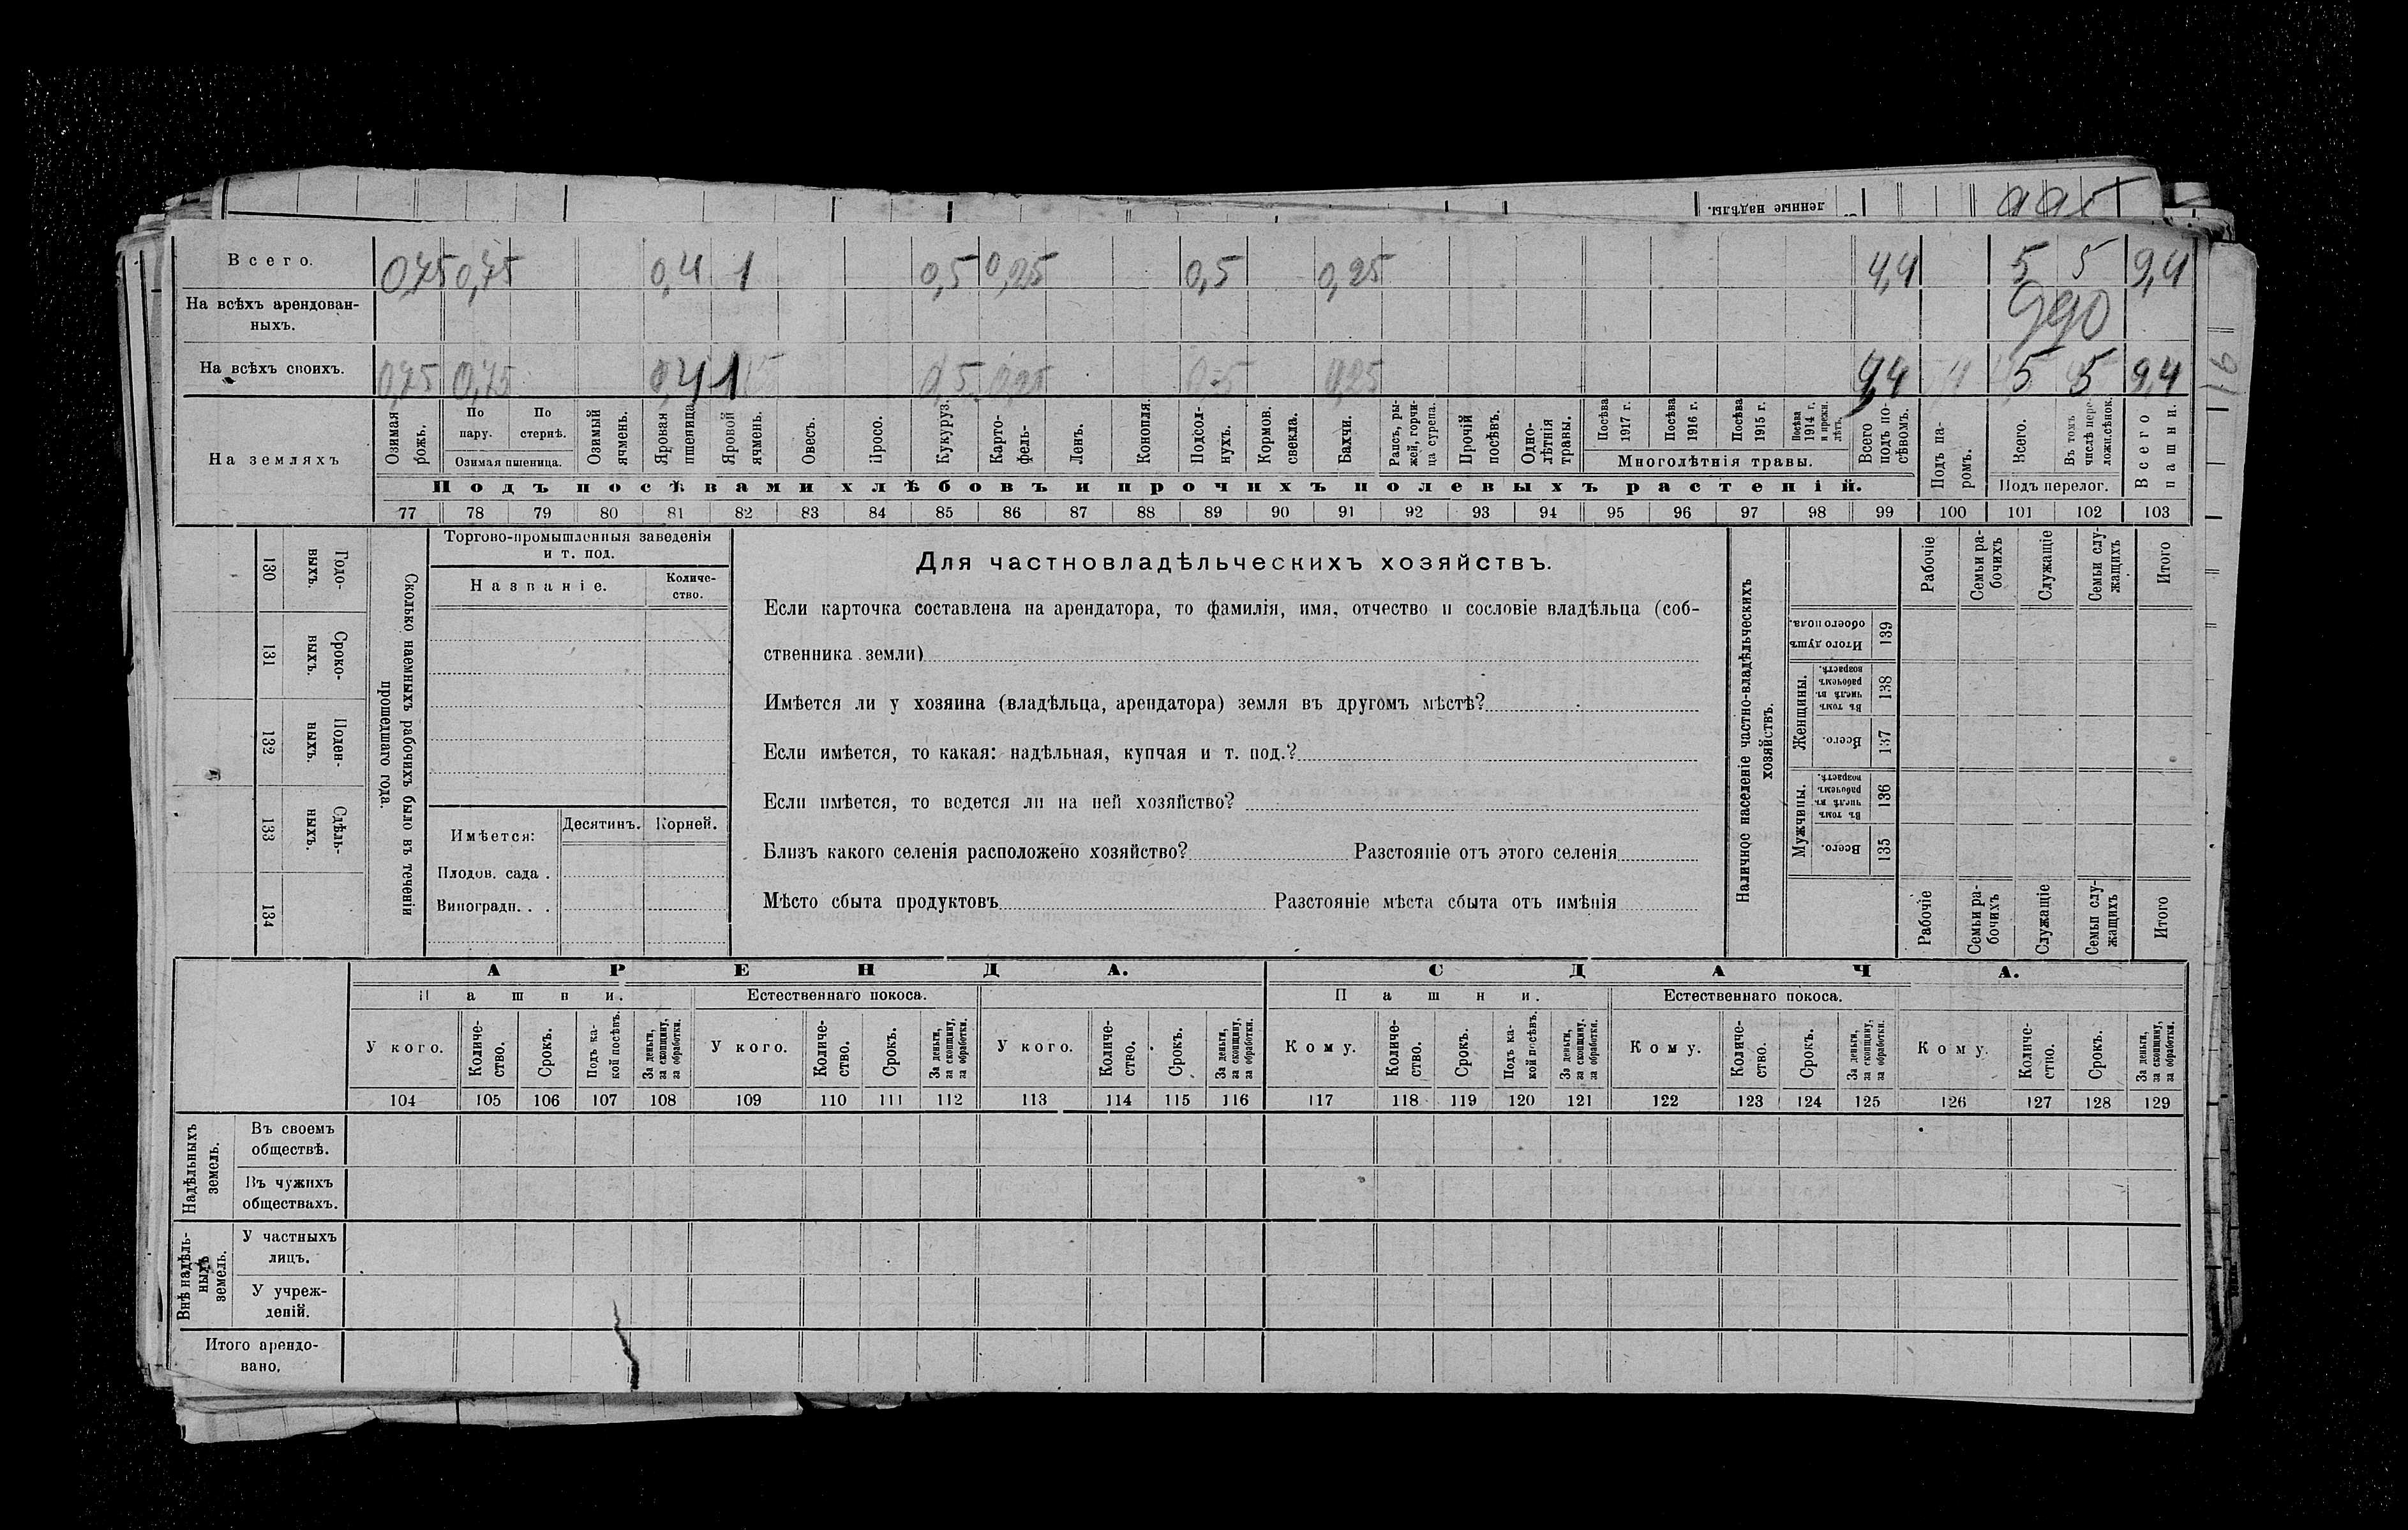 денные надѣлы.
Всего. 0,75 0,75 0,4 1 0,5 0,25 0,5 0,25 4,4 5 5 9,4
На всѣхъ арендован-
ныхъ. 990
На всѣхъ своихъ. 0,75 0,75 0,4 1 0,5 0,25 0,5 0,25 4,4 5 5 9,4
На земляхъ
Озимая рожь.
По пару.
По стернѣ.
Озимая пшеница.
Озимый ячмень.
Яровая пшеница
Яровой ячмень.
Овесъ.
Просо.
Кукуруз.
Карто-
фель-
Ленъ.
Конопля.
Подсол-
нухъ.
Кормов. свекла.
Бахчи.
Рапсъ, ры-
жей, горчи-
ца сурепа.
Прочій посѣвъ.
Одно-
лѣтнія травы.
Посѣва 1917 г.
Посѣва 1916 г.
Посѣва 1915 г.
Посѣва 1914 г. и прежн. лѣтъ.
Многолѣтнія травы.
Всего подъ по-
сѣвомъ.
Подъ па-
ромъ.
Всего.
Въ томъ числѣ пере-
ложн.сѣнок.
Подъ перелог.
Всего пашни.
Подъ посѣвами хлѣбовъ и прочихъ полевыхъ растеній.
77 78 79 80 81 82 83 84 85 86 87 88 89 90 91 92 93 94 95 96 97 98 99 100 101 102 103
130 Годо-
выхъ.
131 Сроко-
ныхъ.
132 Поден-
ныхъ.
133 Сдѣль-
ныхъ.
134
Сколько наемныхъ рабочихъ было въ теченіи
прошедшаго года.
Торгово-промышленныя заведенія
и т. под.
Названіе.
Количе-
ство.
Имѣется:
Десятинъ. Корней.
Плодов. сада .
Виноградн. . .
Для частновладѣльческихъ хозяйствъ.
Если карточка составлена на арендатора, то фамилія, имя, отчество и сословіе владѣльца (соб-
ственника земли)
Имѣется ли у хозяина (владѣльца, арендатора) земля въ другомъ мѣстѣ?
Если имѣется, то какая: надѣльная, купчая и т. под.?
Если имѣется, то ведется ли на ней хозяйство?
Близъ какого селенія расположено хозяйство? Разстояніе отъ этого селенія
Мѣсто сбыта продуктовъ Разстояніе мѣста сбыта отъ имѣнія
Наличное населеніе частно-владѣльческихъ
хозяйствъ.
Рабочіе
Семьи ра-
бочихъ
Служащіе
Семьи слу-
жащихъ
Итого
Итого душъ обоего пола. 139
Женщины.
Въ томъ числѣ въ рабочемъ возрастѣ. 138
Всего. 137
Мужчины.
Въ томъ числѣ въ рабочемъ возрастѣ. 136
Всего. 135
Рабочіе
Семьи ра-
бочихъ
Служащіе
Семьи слу-
жащихъ
Итого
АРЕНДА. СДАЧА.
Пашни. Естественнаго покоса. Пашни. Естественнаго покоса.
У кого.
Количе-
ство.
Срокъ.
Подъ ка-
кой посѣвъ.
За деньги,
за скопщину,
за обработки.
У кого.
Количе-
ство.
Срокъ.
За деньги,
за скопщину,
за обработки.
У кого.
Количе-
ство.
Срокъ.
За деньги,
за скопщину,
за обработки.
Кому.
Количе-
ство.
Срокъ.
Подъ ка-
кой посѣвъ.
За деньги,
за скопщину.
за обработки.
Кому.
Количе-
ство.
Срокъ.
За деньги,
за скопщину,
за обработки.
Кому.
Количе-
ство.
Срокъ.
За деньги,
за скопщину,
за обработки.
104 105 106 107 108 109 110 111 112 113 114 115 116 117 118 119 120 121 122 123 124 125 126 127 128 129
Надѣльныхъ
земель.
Въ своемъ
обществѣ.
Въ чужихъ
обществахъ.
Внѣ надѣль-
ныхъ
земель.
У частныхъ
лицъ.
У учреж-
деній.
Итого арендо-
вано.